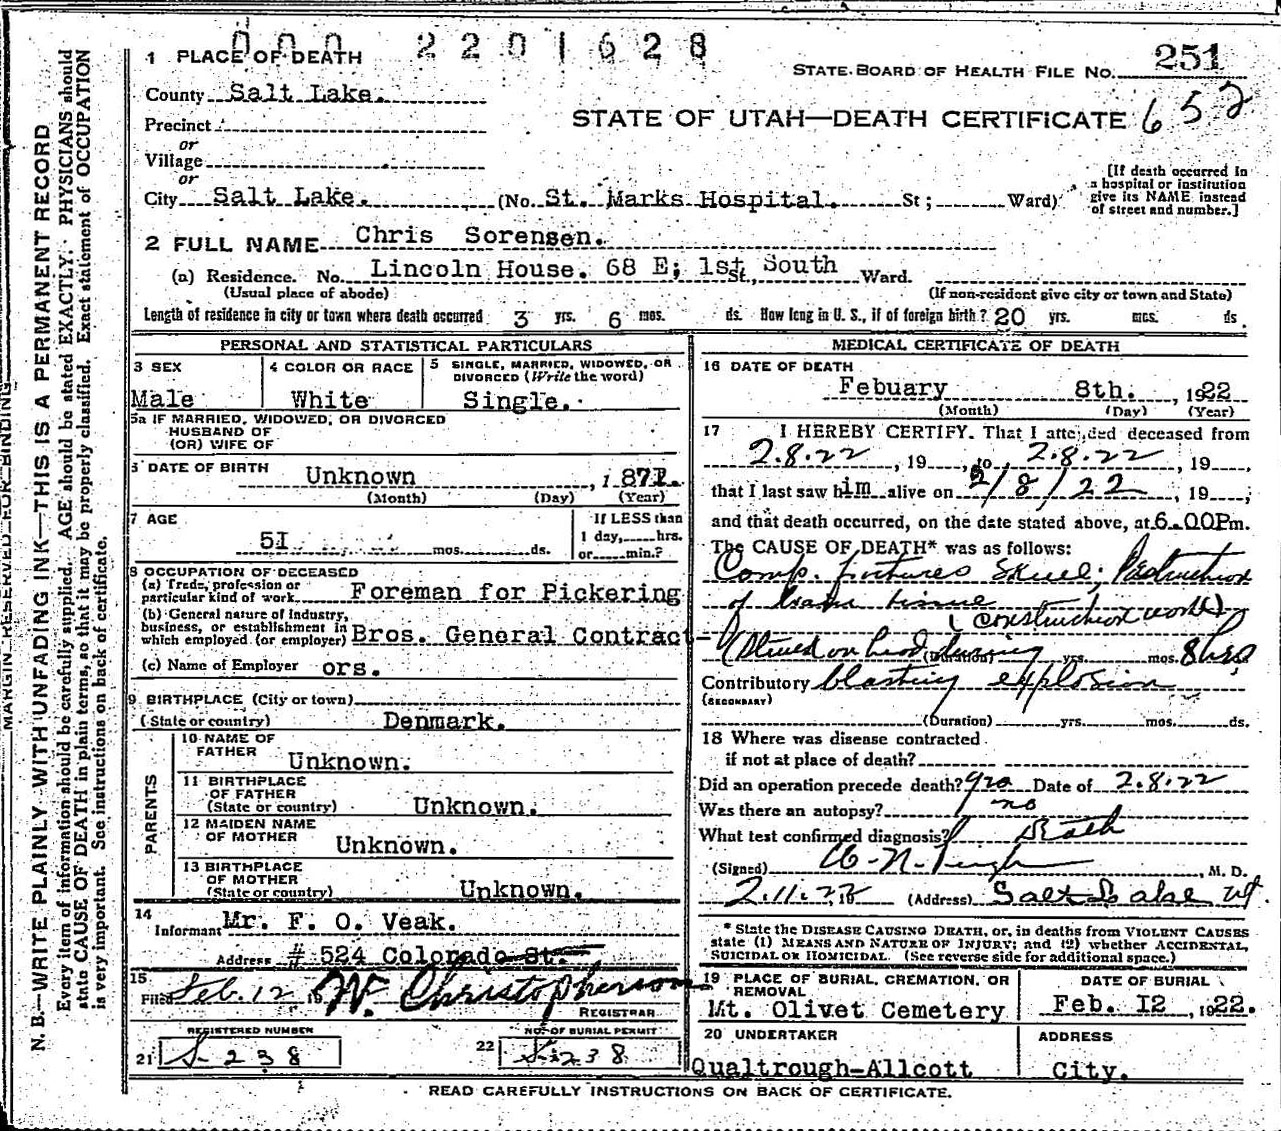 000 2201628
1 PLACE OF DEATH
STATE BOARD OF HEALTH FILE NO. 251
County Salt Lake.
STATE OF UTAH—DEATH CERTIFICATE 652
Precinct
or
Village
or
City Salt Lake. (No. St. Marks Hospital. St; Ward)
[If death occurred in a hospital or institution give its NAME instead of street and number.]
2 FULL NAME Chris Sorensen.
(a) Residence. No. Lincoln House. 68 E; 1st St., South Ward.
(Usual place of abode) (If non-resident give city or town and State)
Length of residence in city or town where death occurred 3 yrs. 6 mos. ds. How long in U. S., if of foreign birth? 20 yrs. mos. ds.
PERSONAL AND STATISTICAL PARTICULARS
3 SEX
Male
4 COLOR OR RACE
White
5 SINGLE, MARRIED, WIDOWED, OR DIVORCED (Write the word)
Single.
5a IF MARRIED, WIDOWED, OR DIVORCED
HUSBAND OF
(OR) WIFE OF
6 DATE OF BIRTH Unknown , 1871.
(Month) (Day) (Year)
7 AGE
51 mos. ds.
If LESS than
1 day, hrs.
or min.?
8 OCCUPATION OF DECEASED
(a) Trade, profession or particular kind of work Foreman for Pickering
(b) General nature of industry, business, or establishment in which employed (or employer) Bros. General Contract-
(c) Name of Employer ors.
9 BIRTHPLACE (City or town)
(State or country) Denmark.
PARENTS
10 NAME OF FATHER Unknown.
11 BIRTHPLACE OF FATHER
(State or country) Unknown.
12 MAIDEN NAME OF MOTHER Unknown.
13 BIRTHPLACE OF MOTHER
(State or country) Unknown.
14
Informant Mr. F. O. Veak.
Address # 524 Colorado St.
15
Filed Feb. 12 19 W. Christopherson
REGISTRAR
REGISTERED NUMBER
21 S-238
NO. OF BURIAL PERMIT
22 S-238
MEDICAL CERTIFICATE OF DEATH
16 DATE OF DEATH
Febuary 8th. , 1922
(Month) (Day) (Year)
17 I HEREBY CERTIFY. That I attended deceased from
2.8.22 , 19 , to 2.8.22 , 19 ,
that I last saw him alive on 2/8/22 , 19 ,
and that death occurred, on the date stated above, at 6.00Pm.
The CAUSE OF DEATH* was as follows:
Comp. fractures Skull; Destruction
of brain tissue
(Construction work)
(Struck on head during (Duration) yrs. mos. 8 hrs
Contributory blasting explosion
(SECONDARY)
(Duration) yrs. mos. ds.
18 Where was disease contracted
if not at place of death?
Did an operation precede death? yes Date of 2.8.22
Was there an autopsy? no
What test confirmed diagnosis? Death
(Signed) , M. D.
2.11.22, 19 (Address) Salt Lake Ut.
* State the DISEASE CAUSING DEATH, or, in deaths from VIOLENT CAUSES state (1) MEANS AND NATURE OF INJURY; and (2) whether ACCIDENTAL, SUICIDAL OR HOMICIDAL. (See reverse side for additional space.)
19 PLACE OF BURIAL, CREMATION, OR REMOVAL
Mt. Olivet Cemetery
DATE OF BURIAL
Feb. 12 , 1922.
20 UNDERTAKER
Qualtrough-Allcott
ADDRESS
City.
READ CAREFULLY INSTRUCTIONS ON BACK OF CERTIFICATE.
MARGIN RESERVED FOR BINDING
N. B.—WRITE PLAINLY WITH UNFADING INK—THIS IS A PERMANENT RECORD
Every item of information should be carefully supplied. AGE should be stated EXACTLY. PHYSICIANS should
state CAUSE OF DEATH in plain terms, so that it may be properly classified. Exact statement of OCCUPATION
is very important. See instructions on back of certificate.